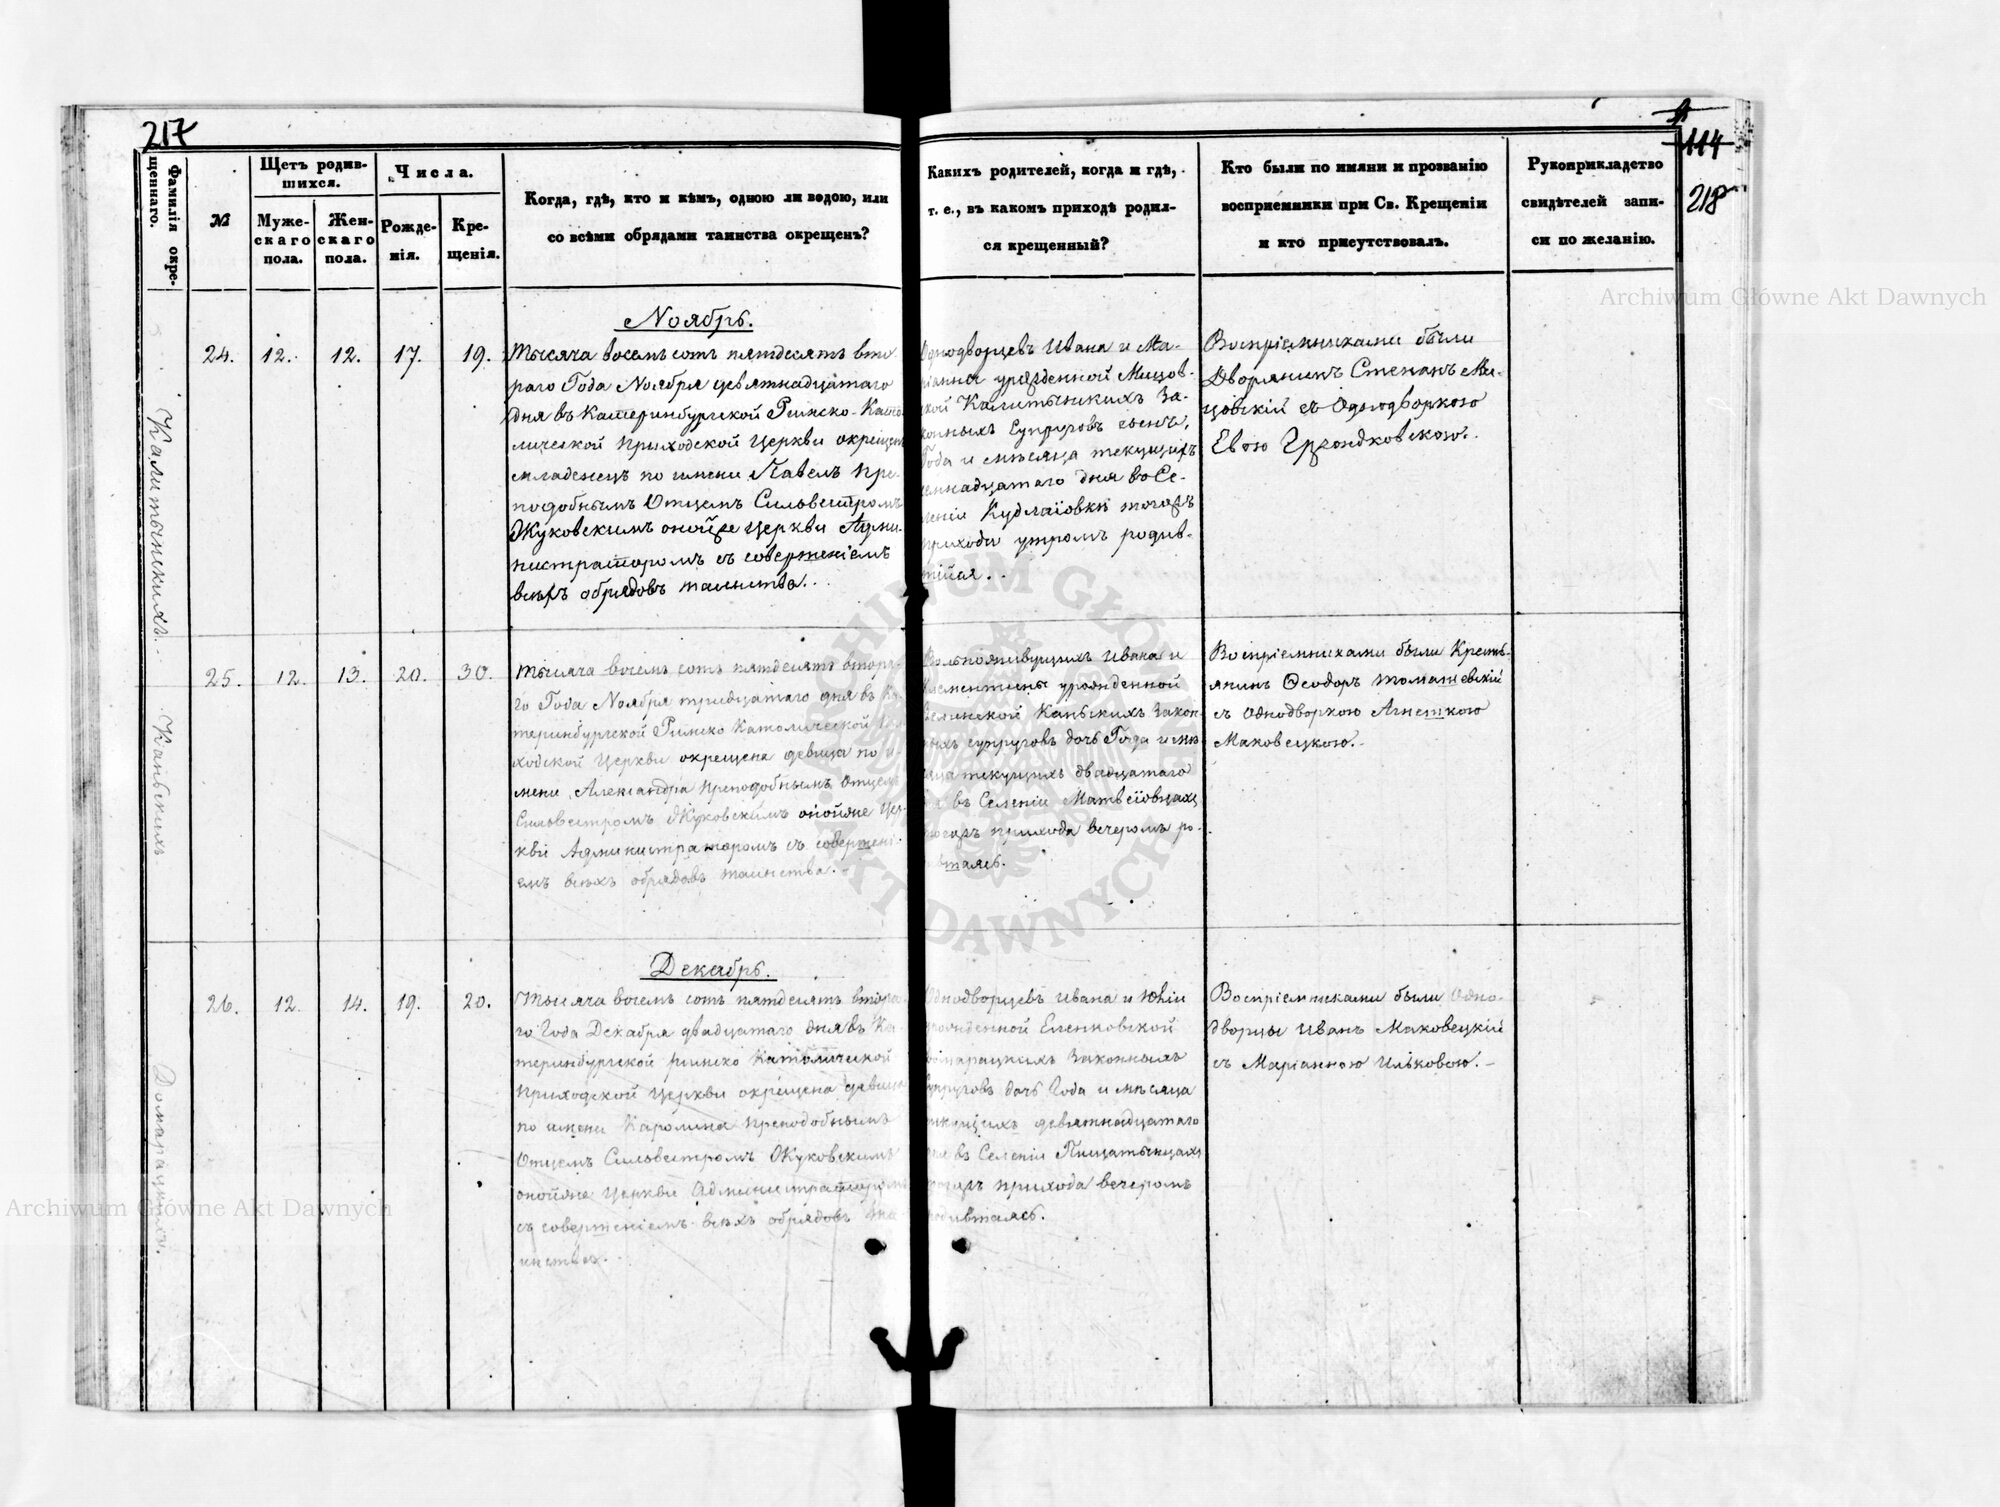 217
Фамилія окре-
щеннаго.
№
Щетъ родив-
шихся.
Муже-
скаго
пола.
Жен-
скаго
пола.
Числа.
Рожде-
нія.
Кре-
щенія.
Когда, гдѣ, кто и кѣмъ, одною ли водою, или
со всѣми обрядами таинства окрещенъ?
Ноябрь.
Калитынскихъ.
24. 12. 12. 17. 19.
Тысяча восемъ сотъ пятдесятъ вто
раго Года Ноября девятнадцатаго
дня въ Катеринбургской Римско-Като
лической Приходской Церкви окрещен
младенецъ по имени Павелъ Пре-
подобнымъ Отцемъ Сильвестромъ
Жуковскимъ онойже Церкви Адми-
нистраторомъ съ совершеніемъ
всѣхъ обрядовъ таинства.
Каньскихъ
25. 12. 13. 20. 30.
Тысяча восемъ сотъ пятдесятъ втора-
го Года Ноября тридцатаго дня въ Ка
теринбургской Римско Католической
ходской Церкви окрещена девица по и-
мени Александра Преподобнымъ Отцемъ
Сильвестромъ Жуковскимъ онойже Цер-
кви Администраторомъ съ совершені-
емъ всѣхъ обрядовъ таинства.
Декабрь.
26. 12. 14. 19. 20.
Тысяча восемъ сотъ пятдесятъ втора
го Года Декабря двадцатаго дня въ Ка-
теринбургской Римско Католической
Приходской Церкви окрещена девица
по имени Каролина Преподобнымъ
Отцемъ Сильвестромъ Жуковскимъ
онойже Церкви Администраторомъ
съ совершеніемъ всѣхъ обрядовъ та-
инства.
114
218
Какихъ родителей, когда и гдѣ,
т. е., въ какомъ приходѣ родил-
ся крещенный?
Кто были по имяни и прозванію
воспріемники при Св. Крещеніи
и кто присутствовалъ.
Рукоприкладство
свидѣтелей запи-
си по желанію.
Однодворцевъ Ивана и Ма-
ріанны урожденной Мицов-
ской Калитынскихъ За-
конныхъ Супруговъ сынъ,
Года и мѣсяца текущихъ
семнадцатаго дня во Се-
леніи Кудлаіовки тогожъ
прихода утромъ родив-
шійся.
Воспріемниками были
Дворянинъ Степанъ Ми-
цовскій съ Однодворкою
Евою
Вольноживущихъ Ивана и
Клементины урожденной
Каньскихъ Закон-
ныхъ супруговъ дочь Года и мѣ
сяца текущихъ двадцатаго
дня въ Селеніи Матвеіовцахъ
тогожъ прихода вечеромъ ро-
дившаясь.
Воспріемниками были Кресть-
янинъ Ѳеодоръ Томашевскій
съ Однодворкою Агнешкою
Маковецкою.
Однодворцевъ Ивана и Юліи
урожденной Еленковской
Домарацкихъ Законныхъ
супруговъ дочь Года и мѣсяца
текущихъ девятнадцатаго
дня въ Селеніи Пищатынцахъ
тогожъ прихода вечеромъ
родившаясь.
Воспріемниками были Одно-
дворцы Иванъ Маковецкій
съ Маріанною Ильковою.
Archiwum Główne Akt Dawnych
Archiwum Główne Akt Dawnych